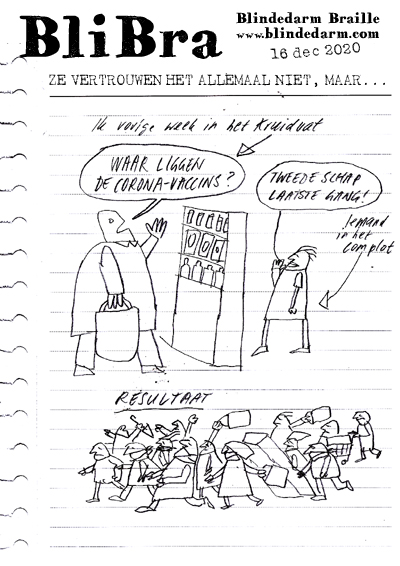 BliBra
Blindedarm Braille
www.blindedarm.com
16 dec 2020
ZE VERTROUWEN HET ALLEMAAL NIET, MAAR...
Ik vorige week in het Kruidvat
WAAR LIGGEN
DE CORONA-VACCINS?
TWEEDE SCHAP
LAATSTE GANG!
Iemand
in het
complot
RESULTAAT